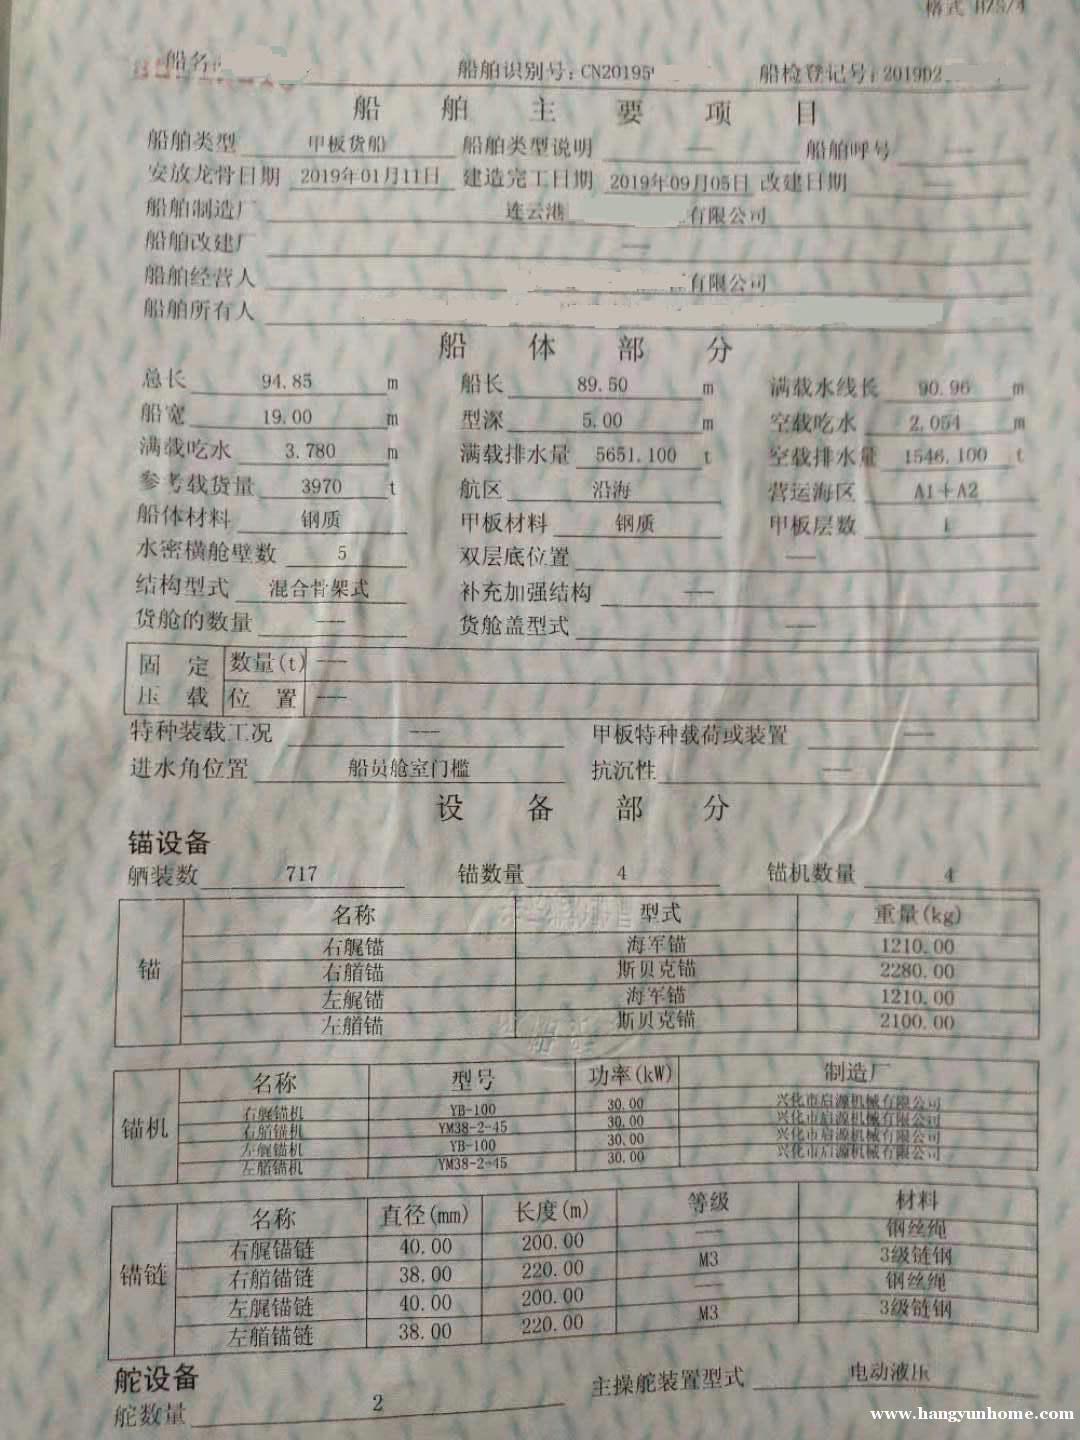 格式 HZS/4
船名
船舶识别号:CN20195
船检登记号:2019D2
船舶主要项目
船舶类型 甲板货船 船舶类型说明 —— 船舶呼号 ——
安放龙骨日期 2019年01月11日 建造完工日期 2019年09月05日 改建日期 ——
船舶制造厂 连云港 有限公司
船舶改建厂 ——
船舶经营人 有限公司
船舶所有人
船体部分
总长 94.85 m 船长 89.50 m 满载水线长 90.96 m
船宽 19.00 m 型深 5.00 m 空载吃水 2.054 m
满载吃水 3.780 m 满载排水量 5651.100 t 空载排水量 1546.100 t
参考载货量 3970 t 航区 沿海 营运海区 A1+A2
船体材料 钢质 甲板材料 钢质 甲板层数 1
水密横舱壁数 5 双层底位置 ——
结构型式 混合骨架式 补充加强结构 ——
货舱的数量 —— 货舱盖型式 ——
固定 数量(t) ——
压载 位置 ——
特种装载工况 —— 甲板特种载荷或装置 ——
进水角位置 船员舱室门槛 抗沉性 ——
设备部分
锚设备
舾装数 717 锚数量 4 锚机数量 4
锚 名称 型式 重量(kg)
右艉锚 海军锚 1210.00
右艏锚 斯贝克锚 2280.00
左艉锚 海军锚 1210.00
左艏锚 斯贝克锚 2100.00
锚机 名称 型号 功率(kW) 制造厂
右艉锚机 YB-100 30.00 兴化市启源机械有限公司
右艏锚机 YM38-2-45 30.00 兴化市启源机械有限公司
左艉锚机 YB-100 30.00 兴化市启源机械有限公司
左艏锚机 YM38-2-45 30.00 兴化市启源机械有限公司
锚链 名称 直径(mm) 长度(m) 等级 材料
右艉锚链 40.00 200.00 —— 钢丝绳
右艏锚链 38.00 220.00 M3 3级链钢
左艉锚链 40.00 200.00 —— 钢丝绳
左艏锚链 38.00 220.00 M3 3级链钢
舵设备
舵数量 2 主操舵装置型式 电动液压
www.hangyunhome.com